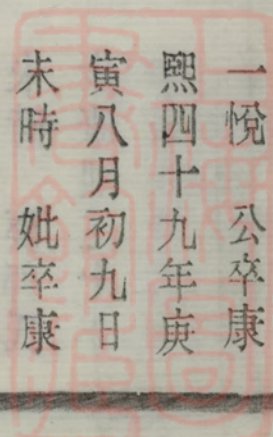 一悅　公卒康
熙四十九年庚
寅八月初九日
未時　妣卒康